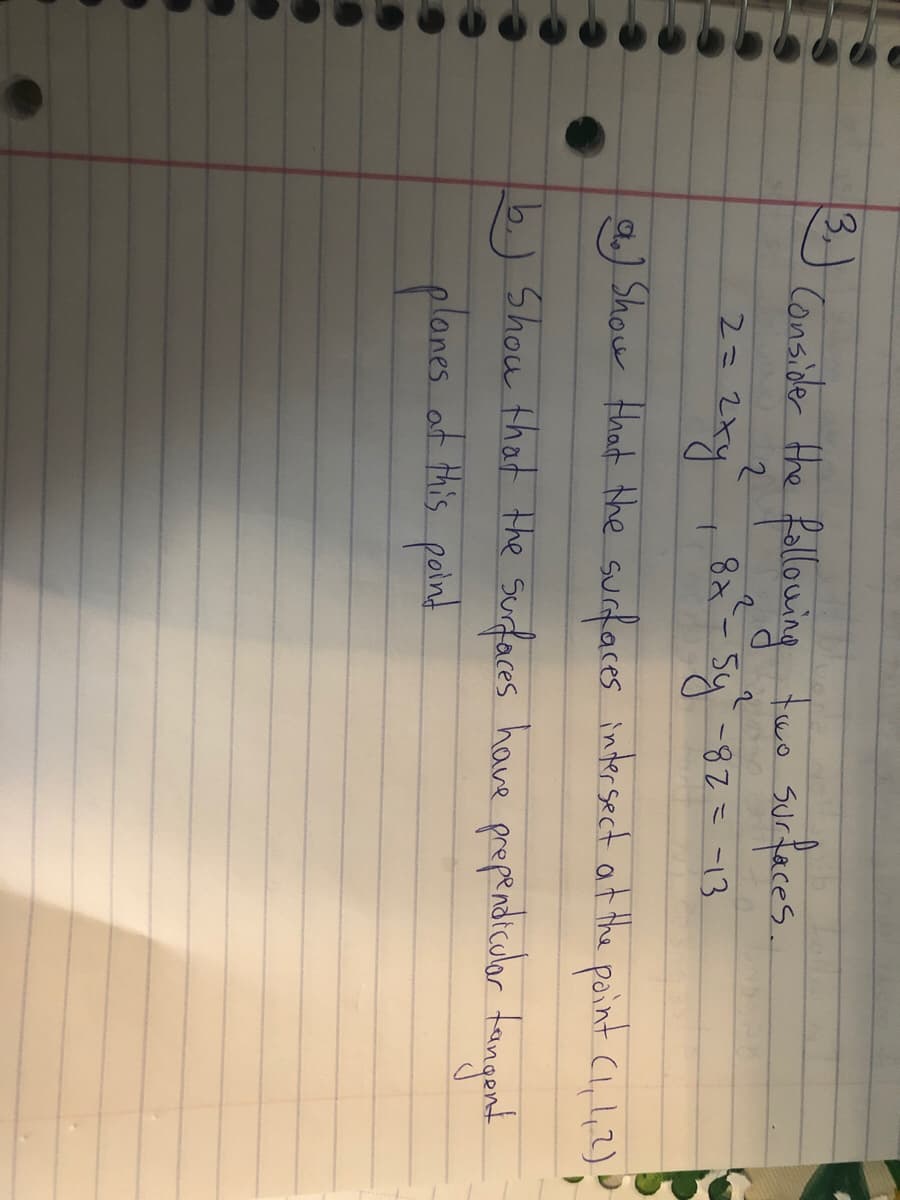 3.) Consider the following two surfaces.
z = 2xy², 8x² - 5y² - 8z = -13
a.) Show that the surfaces intersect at the point (1,1,2)
b.) Show that the surfaces have prependicular tangent
planes at this point